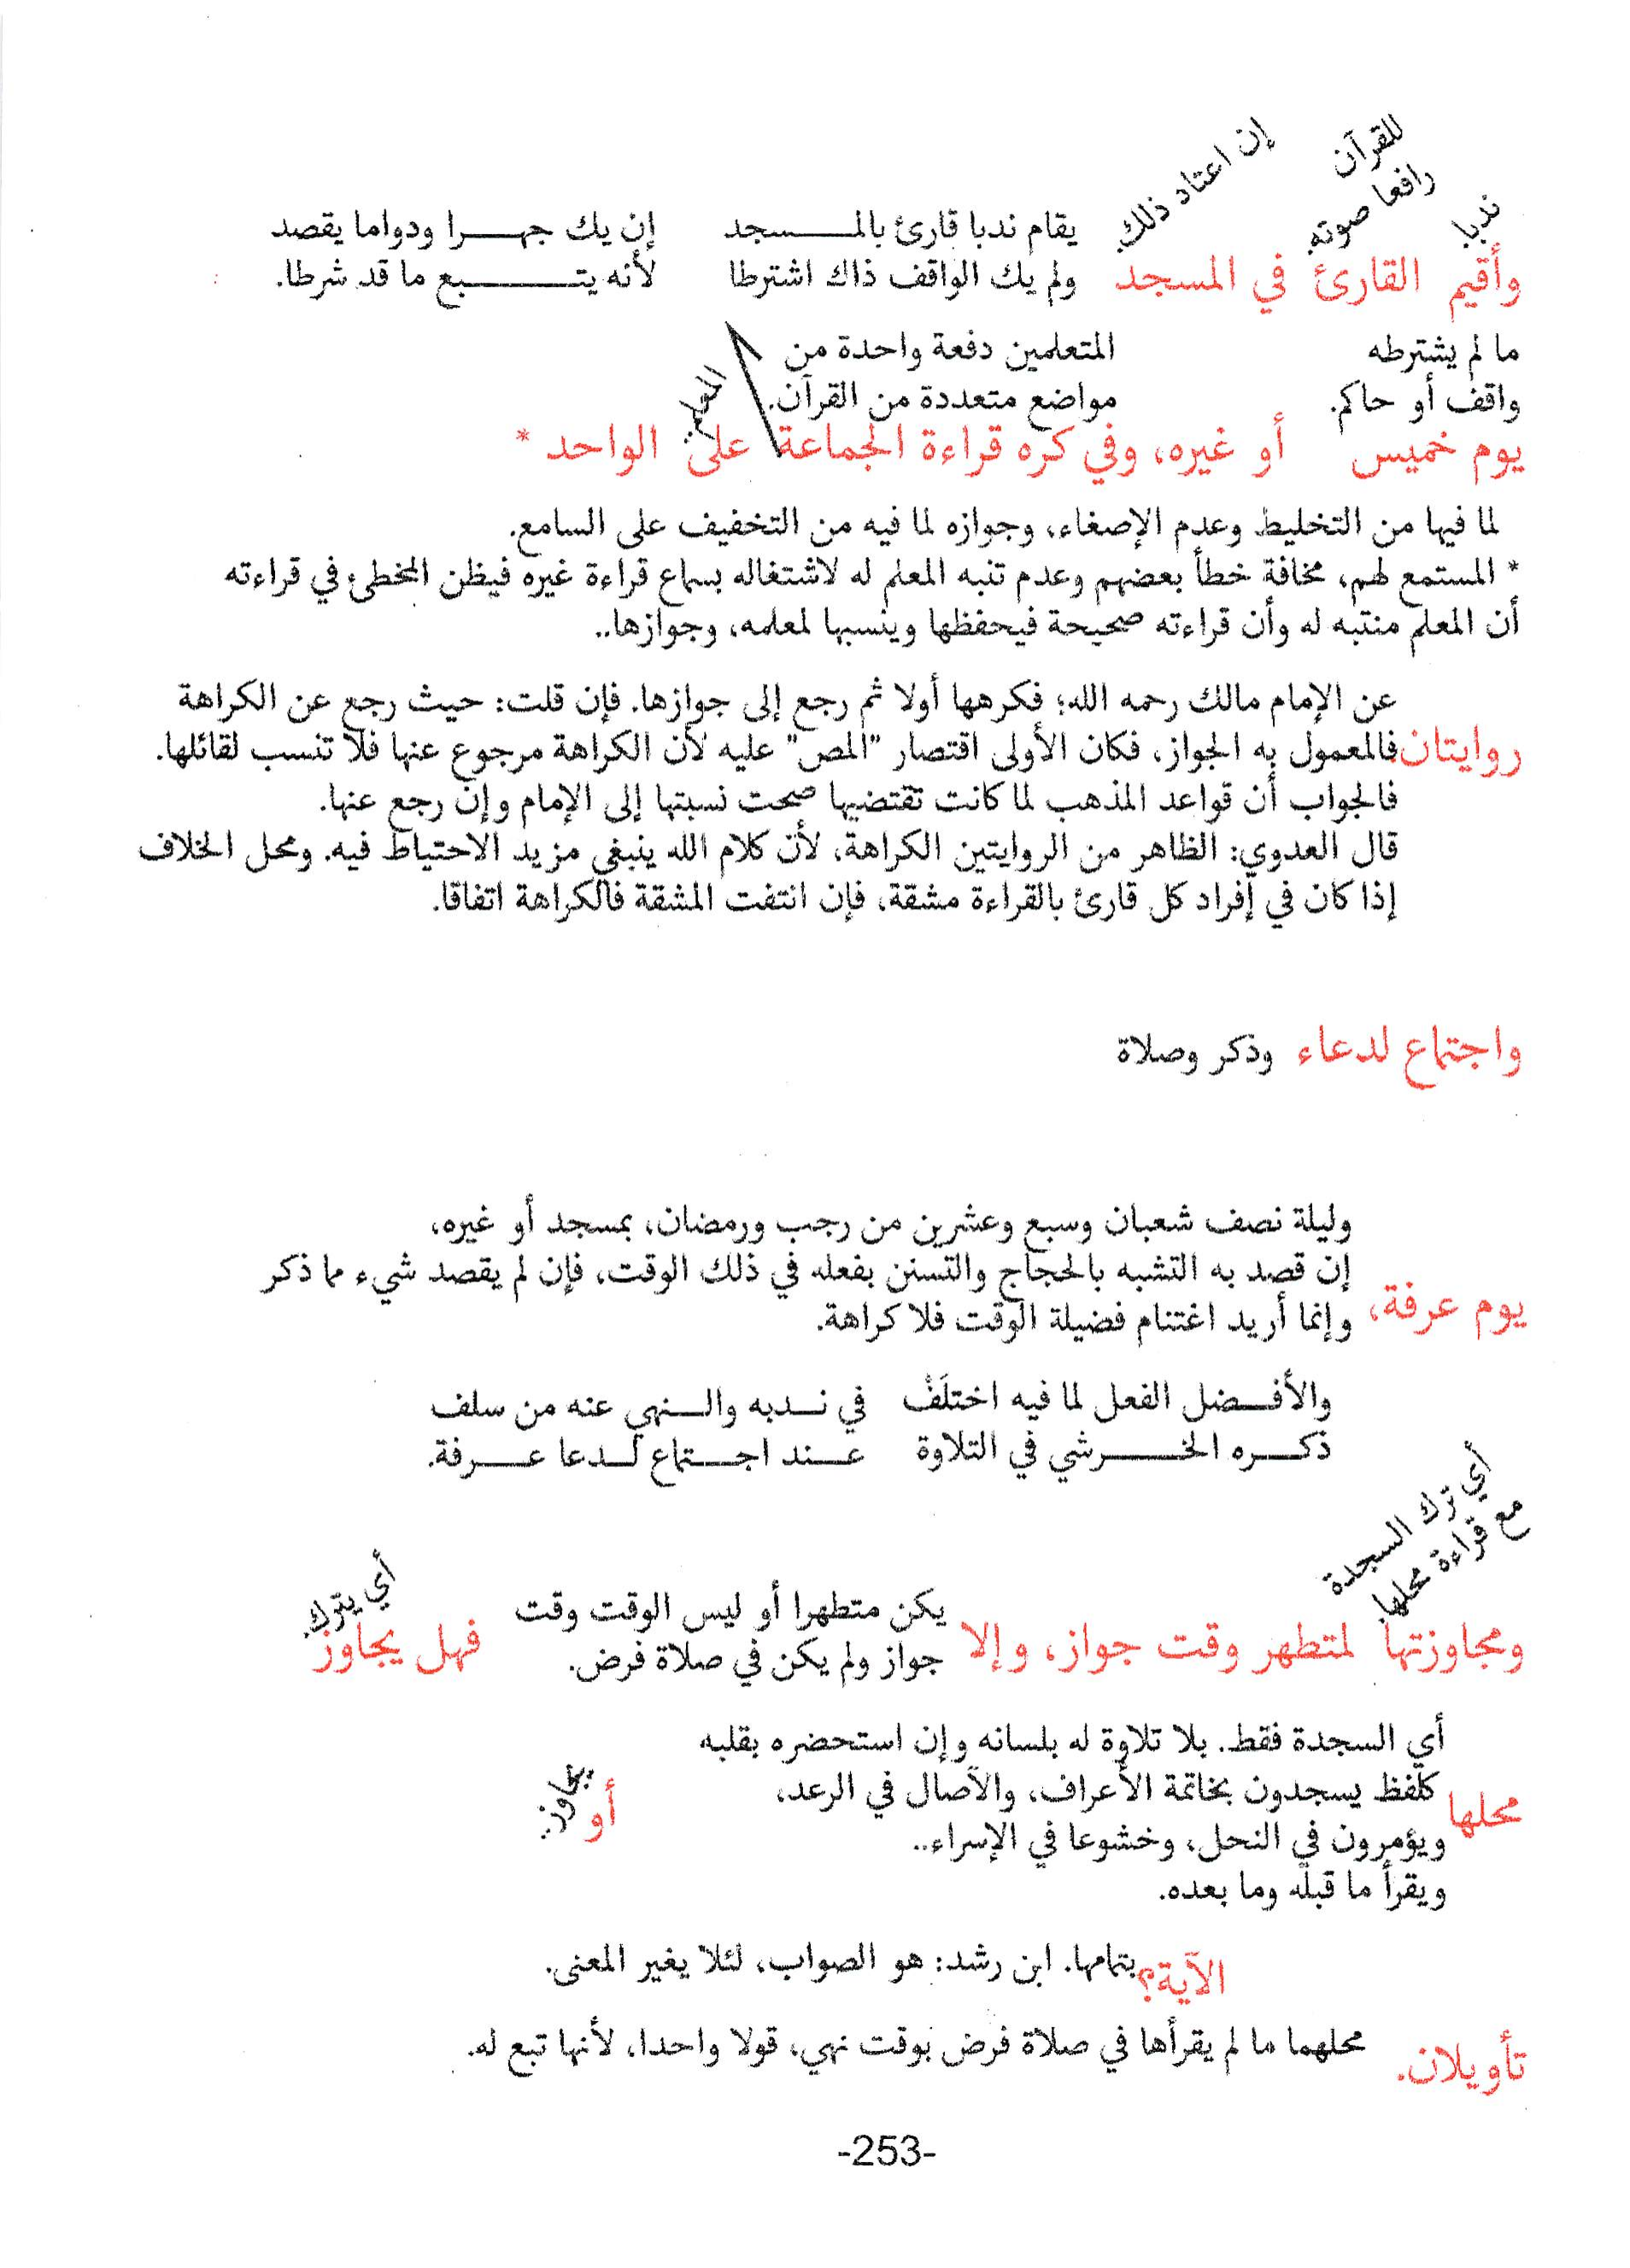 ندبا
للقرآن
رافعا صوته
إن اعتاد ذلك
يقام ندبا قارئ بالمـسـجد إن يك جهـرا ودواما يقصد
ولم يك الواقف ذاك اشترطا لأنه يتـبع ما قد شرطا.
وأقيم القارئ في المسجد
ما لم يشترطه
واقف أو حاكم.
المتعلمين دفعة واحدة من
مواضع متعددة من القرآن.
المعلم.
يوم خميس أو غيره، وفي كره قراءة الجماعة على الواحد *
لما فيها من التخليط وعدم الإصغاء، وجوازه لما فيه من التخفيف على السامع.
* المستمع لهم، مخافة خطأ بعضهم وعدم تنبه المعلم له لاشتغاله بسماع قراءة غيره فيظن المخطئ في قراءته
أن المعلم منتبه له وأن قراءته صحيحة فيحفظها وينسبها لمعلمه، وجوازها..
روايتان.
عن الإمام مالك رحمه الله؛ فكرهها أولا ثم رجع إلى جوازها. فإن قلت: حيث رجع عن الكراهة
فالمعمول به الجواز، فكان الأولى اقتصار "المص" عليه لأن الكراهة مرجوع عنها فلا تنسب لقائلها.
فالجواب أن قواعد المذهب لما كانت تقتضيها صحت نسبتها إلى الإمام وإن رجع عنها.
قال العدوي: الظاهر من الروايتين الكراهة، لأن كلام الله ينبغي مزيد الاحتياط فيه. ومحل الخلاف
إذا كان في إفراد كل قارئ بالقراءة مشقة، فإن انتفت المشقة فالكراهة اتفاقا.
واجتماع لدعاء وذكر وصلاة
وليلة نصف شعبان وسبع وعشرين من رجب ورمضان، بمسجد أو غيره،
يوم عرفة، إن قصد به التشبه بالحجاج والتسنن بفعله في ذلك الوقت، فإن لم يقصد شيء مما ذكر
وإنما أريد اغتنام فضيلة الوقت فلا كراهة.
والأفـضل الفعل لما فيه اختلَفْ في نـدبه والـنهي عنه من سلف
ذكـره الخـرشي في التلاوة عـند اجـتماع لـدعا عـرفة.
أي ترك السجدة
مع قراءة محلها.
أي يترك.
يكن متطهرا أو ليس الوقت وقت
جواز ولم يكن في صلاة فرض.
ومجاوزتها لمتطهر وقت جواز، وإلا فهل يجاوز
أي السجدة فقط. بلا تلاوة له بلسانه وإن استحضره بقلبه
محلها كلفظ يسجدون بخاتمة الأعراف، والآصال في الرعد،
ويؤمرون في النحل، وخشوعا في الإسراء..
ويقرأ ما قبله وما بعده.
أو
يجاوز..
الآية؟ بتمامها. ابن رشد: هو الصواب، لئلا يغير المعنى.
تأويلان. محلهما ما لم يقرأها في صلاة فرض بوقت نهي، قولا واحدا، لأنها تبع له.
-253-